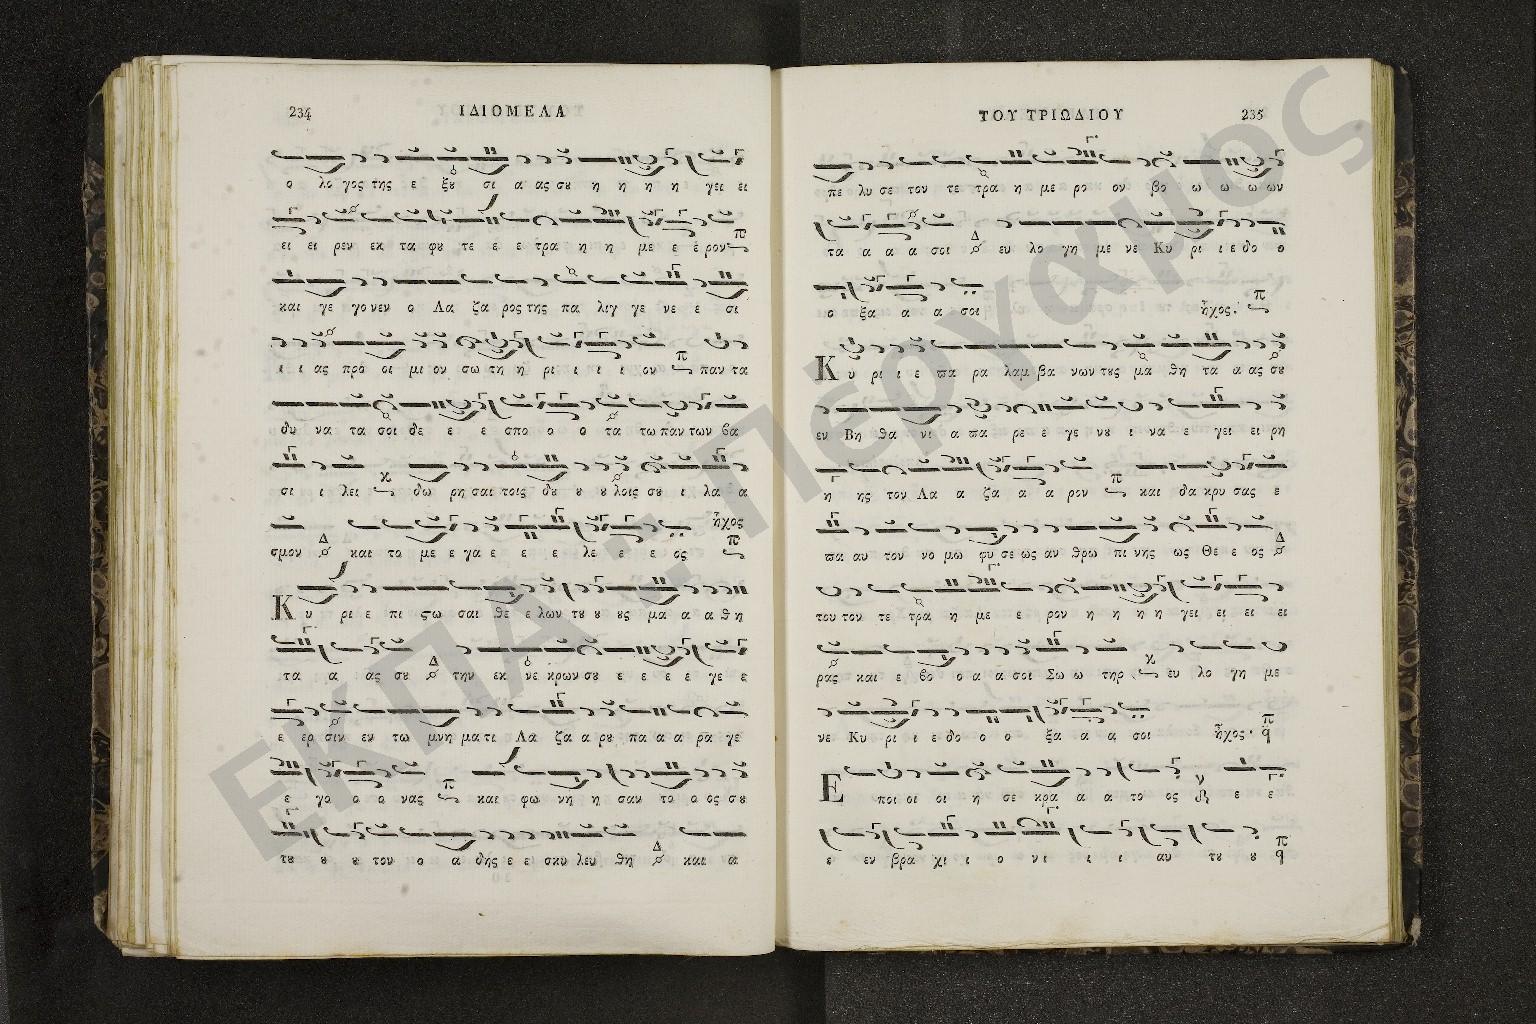 234 ΙΔΙΟΜΕΛΑ
ο λο γος της ε ξȣ σι α ας σȣ η η η η γει ει
ει ει ρεν εκ τα φȣ τε ε ε τρα η η με ε ε ρον π
και γε γο νεν ο Λα ζα ρος της πα λιγ γε νε ε σι
ι ι ας προ οι μι ον σω τη η ρι ι ι ι ον π παν τα
δυ να τα σοι δε ε ε σπο ο ο τα τω παν των βα
σι ι λει κ δω ρη σαι τοις δȣ ȣ ȣ λοις σȣ ι λα α
ἦχος
σμον Δ και το με ε γα ε ε ε λε ε ε ος π
Κ υ ρι ε πι ϛω σαι θε ε λων τȣ ȣ ȣς μα α α θη
τα α ας σȣ Δ την εκ νε κρων σȣ ε ε ε ε γε ε
ε ερ σιν εν τω μνη μα τι Λα ζα α ρȣ πα α α ρα γε
ε γο ο ο νας π και φω νη η σαν το ο ος σȣ
τȣ ȣ ȣ τον ο α δης ε ε σκυ λευ θη Δ και α
ΤΟΥ ΤΡΙΩΔΙΟΥ 235
πε λυ σε τον τε τρα η με ρο ον βο ω ω ω ων
τα α α α σοι Δ ευ λο γη με νε Κυ ρι ι ε δο ο
ο ξα α α σοι ἦχος. π
Κ υ ρι ι ε πα ρα λαμ βα νων τȣς μα θη τα α ας σȣ
εν Βη θα νι α πα ρε ε γε νȣ ι να ε γει ει ρη
η ης τον Λα α ζα α α ρον π και δα κρυ σας ε
πα αυ τον νο μω φυ σε ως αν θρω πι νης ως Θε ε ος Δ
τον τον τε τρα η με ε ρον η η η η γει ει ει ει
ρας και ε βο ο α α σοι Σω ω τηρ κ ευ λο γη με
νε Κυ ρι ι ε δο ο ο ξα α α σοι ἦχος. π q
Ε ποι οι οι η σε κρα α α το ος ε ε
ε εν βρα χι ι ο νι ι ι αυ τȣ ȣ π q